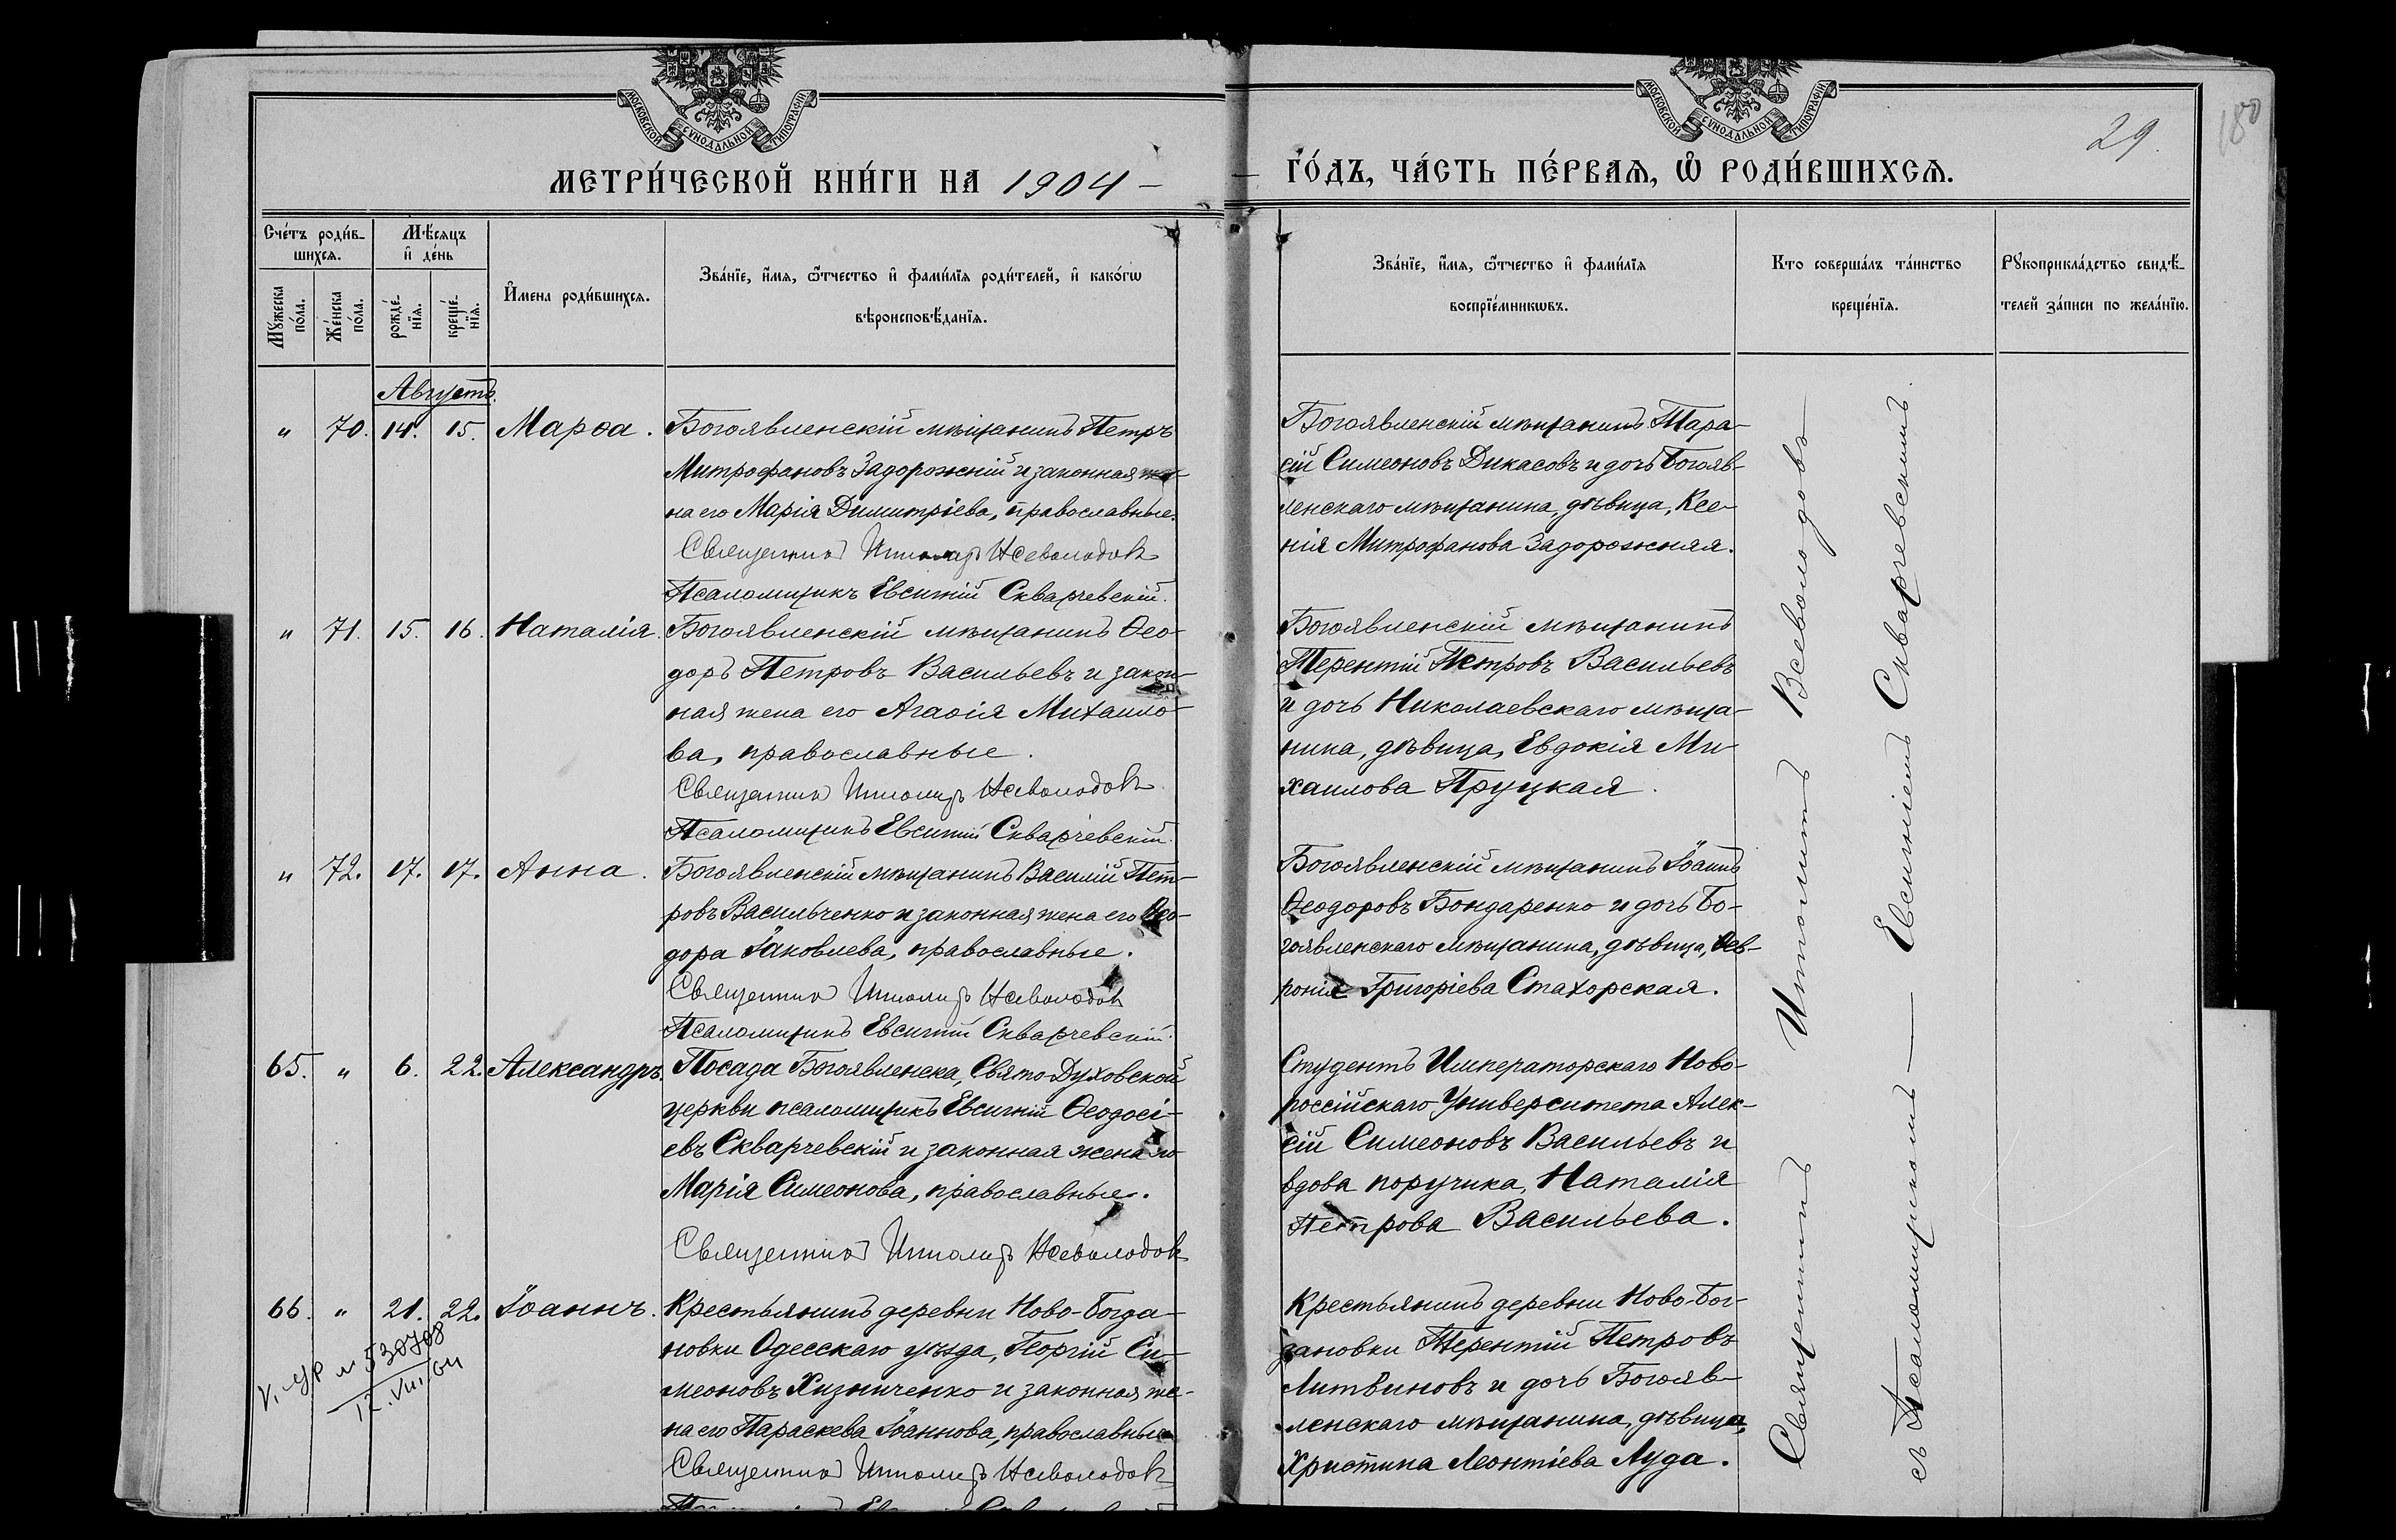 МОСКОВСКОЙ СѴНОДАЛЬНОЙ ТИПОГРАФІИ
МОСКОВСКОЙ СѴНОДАЛЬНОЙ ТИПОГРАФІИ
29.
180
МЕТРИ́ЧЕСКОЙ КНИ́ГИ НА 1904 —
— ГО́ДЪ, ЧА́СТЬ ПЕ́РВАѦ, Ѡ҆ РОДИ́ВШИХСѦ.
Сче́тъ роди́в-
шихсѧ.
Мꙋ́жеска по́ла.
Же́нска по́ла.
Мѣ́сѧцъ
и҆ де́нь
рожде́-нїѧ.
креще́-нїѧ.
И҆́мена роди́вшихсѧ.
Зва́нїе, и҆́мѧ, ѻ҆́тчество и҆ фами́лїѧ роди́телей, и҆ како́гѡ
вѣроисповѣ́данїѧ.
Зва́нїе, и҆́мѧ, ѻ҆́тчество и҆ фами́лїѧ
воспрїе́мникѡвъ.
Кто соверша́лъ та́инство
креще́нїѧ.
Рꙋкоприкла́дство свидѣ́-
телей за́писи по жела́нїю.
Августъ.
" 70. 14. 15. Марѳа. Богоявленскій мѣщанинъ Петръ
Митрофановъ Задорожній и законная же-
на его Марія Димитріева, православные.
Священникъ Ипполитъ Всеволодовъ
Псаломщикъ Евсигній Скварчевскій.
Богоявленскій мѣщанинъ Тара-
сій Симеоновъ Дикасовъ и дочь Богояв-
ленскаго мѣщанина, дѣвица, Ксе-
нія Митрофанова Задорожняя.
" 71. 15. 16. Наталія. Богоявленскій мѣщанинъ Ѳео-
доръ Петровъ Васильевъ и закон-
ная жена его Агаѳія Михаило-
ва, православные.
Священникъ Ипполитъ Всеволодовъ
Псаломщикъ Евсигній Скварчевскій.
Богоявленскій мѣщанинъ
Терентій Петровъ Васильевъ
и дочь Николаевскаго мѣща-
нина, дѣвица, Евдокія Ми-
хаилова Пруцкая.
" 72. 17. 17. Анна. Богоявленскій мѣщанинъ Василій Пет-
ровъ Васильченко и законная жена его Ѳео-
дора Іаковлева, православные.
Священникъ Ипполитъ Всеволодовъ
Псаломщикъ Евсигній Скварчевскій.
Богоявленскій мѣщанинъ Іоаннъ
Ѳеодоровъ Бондаренко и дочь Бо-
гоявленскаго мѣщанина, дѣвица, Ѳев-
ронія Григоріева Стахорская.
65. " 6. 22. Александръ. Посада Богоявленска, Свято-Духовской
церкви псаломщикъ Евсигній Ѳеодосі-
евъ Скварчевскій и законная жена его
Марія Симеонова, православные.
Священникъ Ипполитъ Всеволодовъ
Студентъ Императорскаго Ново-
россійскаго Университета Алек-
сій Симеоновъ Васильевъ и
вдова поручика, Наталія
Петрова Васильева.
66. " 21. 22. Іоаннъ. Крестьянинъ деревни Ново-Богда-
новки Одесскаго уѣзда, Георгій Си-
меоновъ Хизниченко и законная же-
на его Параскева Іоаннова, православные
Священникъ Ипполитъ Всеволодовъ
Крестьянинъ деревни Ново-Бог-
дановки Терентій Петровъ
Литвиновъ и дочь Богояв-
ленскаго мѣщанина, дѣвица,
Христина Леонтіева Луда.
530708
12.VIII.64
Священникъ Ипполитъ Всеволодовъ
съ Псаломщикомъ — Евсигніемъ Скварчевскимъ.